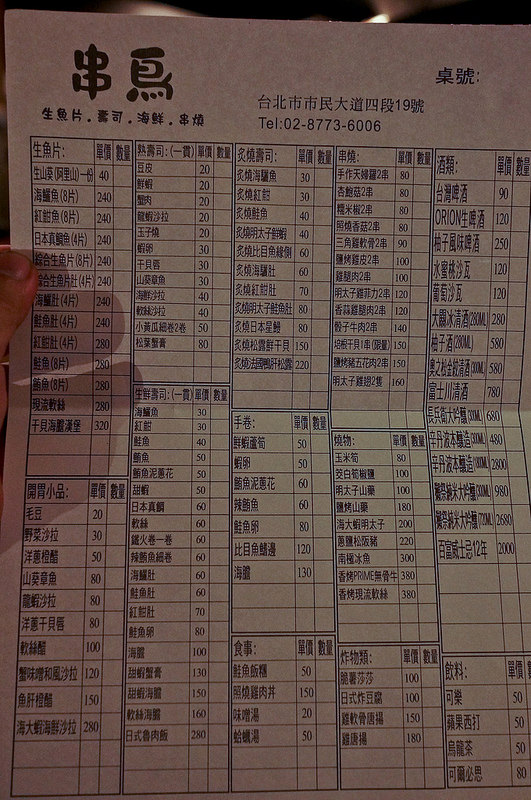 串鳥
生魚片.壽司.海鮮.串燒
桌號:
台北市市民大道四段19號
Tel:02-8773-6006
生魚片: 單價 數量
生山菜(阿里山)一份 40
海鱺魚(8片) 240
紅魽魚(8片) 240
日本真鯛魚(4片) 240
綜合生魚片(8片) 240
綜合生魚片肚(4片) 240
海鱺肚(4片) 240
鮭魚肚(4片) 240
紅魽肚(4片) 280
鮭魚(8片) 280
鮪魚(8片) 280
現流軟絲 280
干貝海膽漢堡 320
開胃小品: 單價 數量
毛豆 20
野菜沙拉 30
洋蔥橙醋 50
山葵章魚 80
龍蝦沙拉 80
洋蔥干貝唇 80
軟絲醋 100
蟹味噌和風沙拉 120
魚肝橙醋 150
海大蝦海鮮沙拉 280
熟壽司:(一貫) 單價 數量
豆皮 20
鮮蝦 20
蟹肉 20
龍蝦沙拉 20
玉子燒 20
蝦卵 30
干貝唇 30
山葵章魚 30
海鮮沙拉 40
軟絲沙拉 40
小黃瓜細卷2卷 50
松葉蟹膏 80
生鮮壽司:(一貫) 單價 數量
海鱺魚 30
紅魽 30
鮭魚 40
鮪魚 50
鮪魚泥蔥花 50
甜蝦 50
日本真鯛 60
軟絲 60
鐵火卷一卷 60
辣鮪魚細卷 60
海鱺肚 60
鮭魚肚 60
紅魽肚 70
鮭魚卵 80
海膽 100
甜蝦蟹膏 130
甜蝦海膽 150
軟絲海膽 160
日式魯肉飯 280
炙燒壽司: 單價 數量
炙燒海鱺魚 30
炙燒紅魽 30
炙燒鮭魚 40
炙燒明太子鮮蝦 40
炙燒比目魚緣側 60
炙燒海鱺肚 60
炙燒紅魽肚 70
炙燒明太子鮭魚肚 80
炙燒日本星鰻 80
炙燒松露鮮干貝 150
炙燒法國鴨肝松露 220
手卷: 單價 數量
鮮蝦蘆筍 50
蝦卵 50
鮪魚泥蔥花 60
辣鮪魚 60
鮭魚卵 80
比目魚鰭邊 120
海膽 130
食事: 單價 數量
鮭魚飯糰 50
照燒雞肉丼 150
味噌湯 20
蛤蠣湯 50
串燒: 單價 數量
手作天婦羅2串 80
杏鮑菇2串 80
糯米椒2串 80
照燒香菇2串 80
三角雞軟骨2串 90
鹽烤雞皮2串 100
雞腿肉2串 100
明太子雞菲力2串 120
香蒜雞腿肉2串 120
骰子牛肉2串 140
培根干貝1串(限量) 150
鹽烤豬五花肉2串 150
明太子雞翅2隻 160
燒物: 單價 數量
玉米筍 80
茭白筍椒鹽 100
明太子山藥 100
鹽烤山藥 180
海大蝦明太子 200
蔥鹽松阪豬 220
南極冰魚 300
香烤PRIME無骨牛 380
香烤現流軟絲 380
炸物類: 單價 數量
脆薯莎莎 100
日式炸豆腐 100
雞軟骨唐揚 150
雞唐揚 180
酒類: 單價 數量
台灣啤酒 90
ORION生啤酒 120
柚子風味啤酒 250
水蜜桃沙瓦 120
葡萄沙瓦 120
大關冰清酒(280ML) 280
柚子酒 580
580
富士川清酒 780
680
辛丹波本釀造 480
辛丹波本釀造 2800
獺祭純米大吟釀 980
獺祭純米大吟釀 2680
百富威士忌12年 2000
飲料: 單價 數量
可樂 50
蘋果西打 50
烏龍茶 50
可爾必思 80